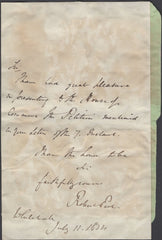 Sir
I have had great pleasure
in presenting to the House of
Commons the Petition mentioned
in your Letter of the 7 Instant.
I have the honor to be
Sir
faithfully yours
Robert Peel
Whitehall
July 11. 1824